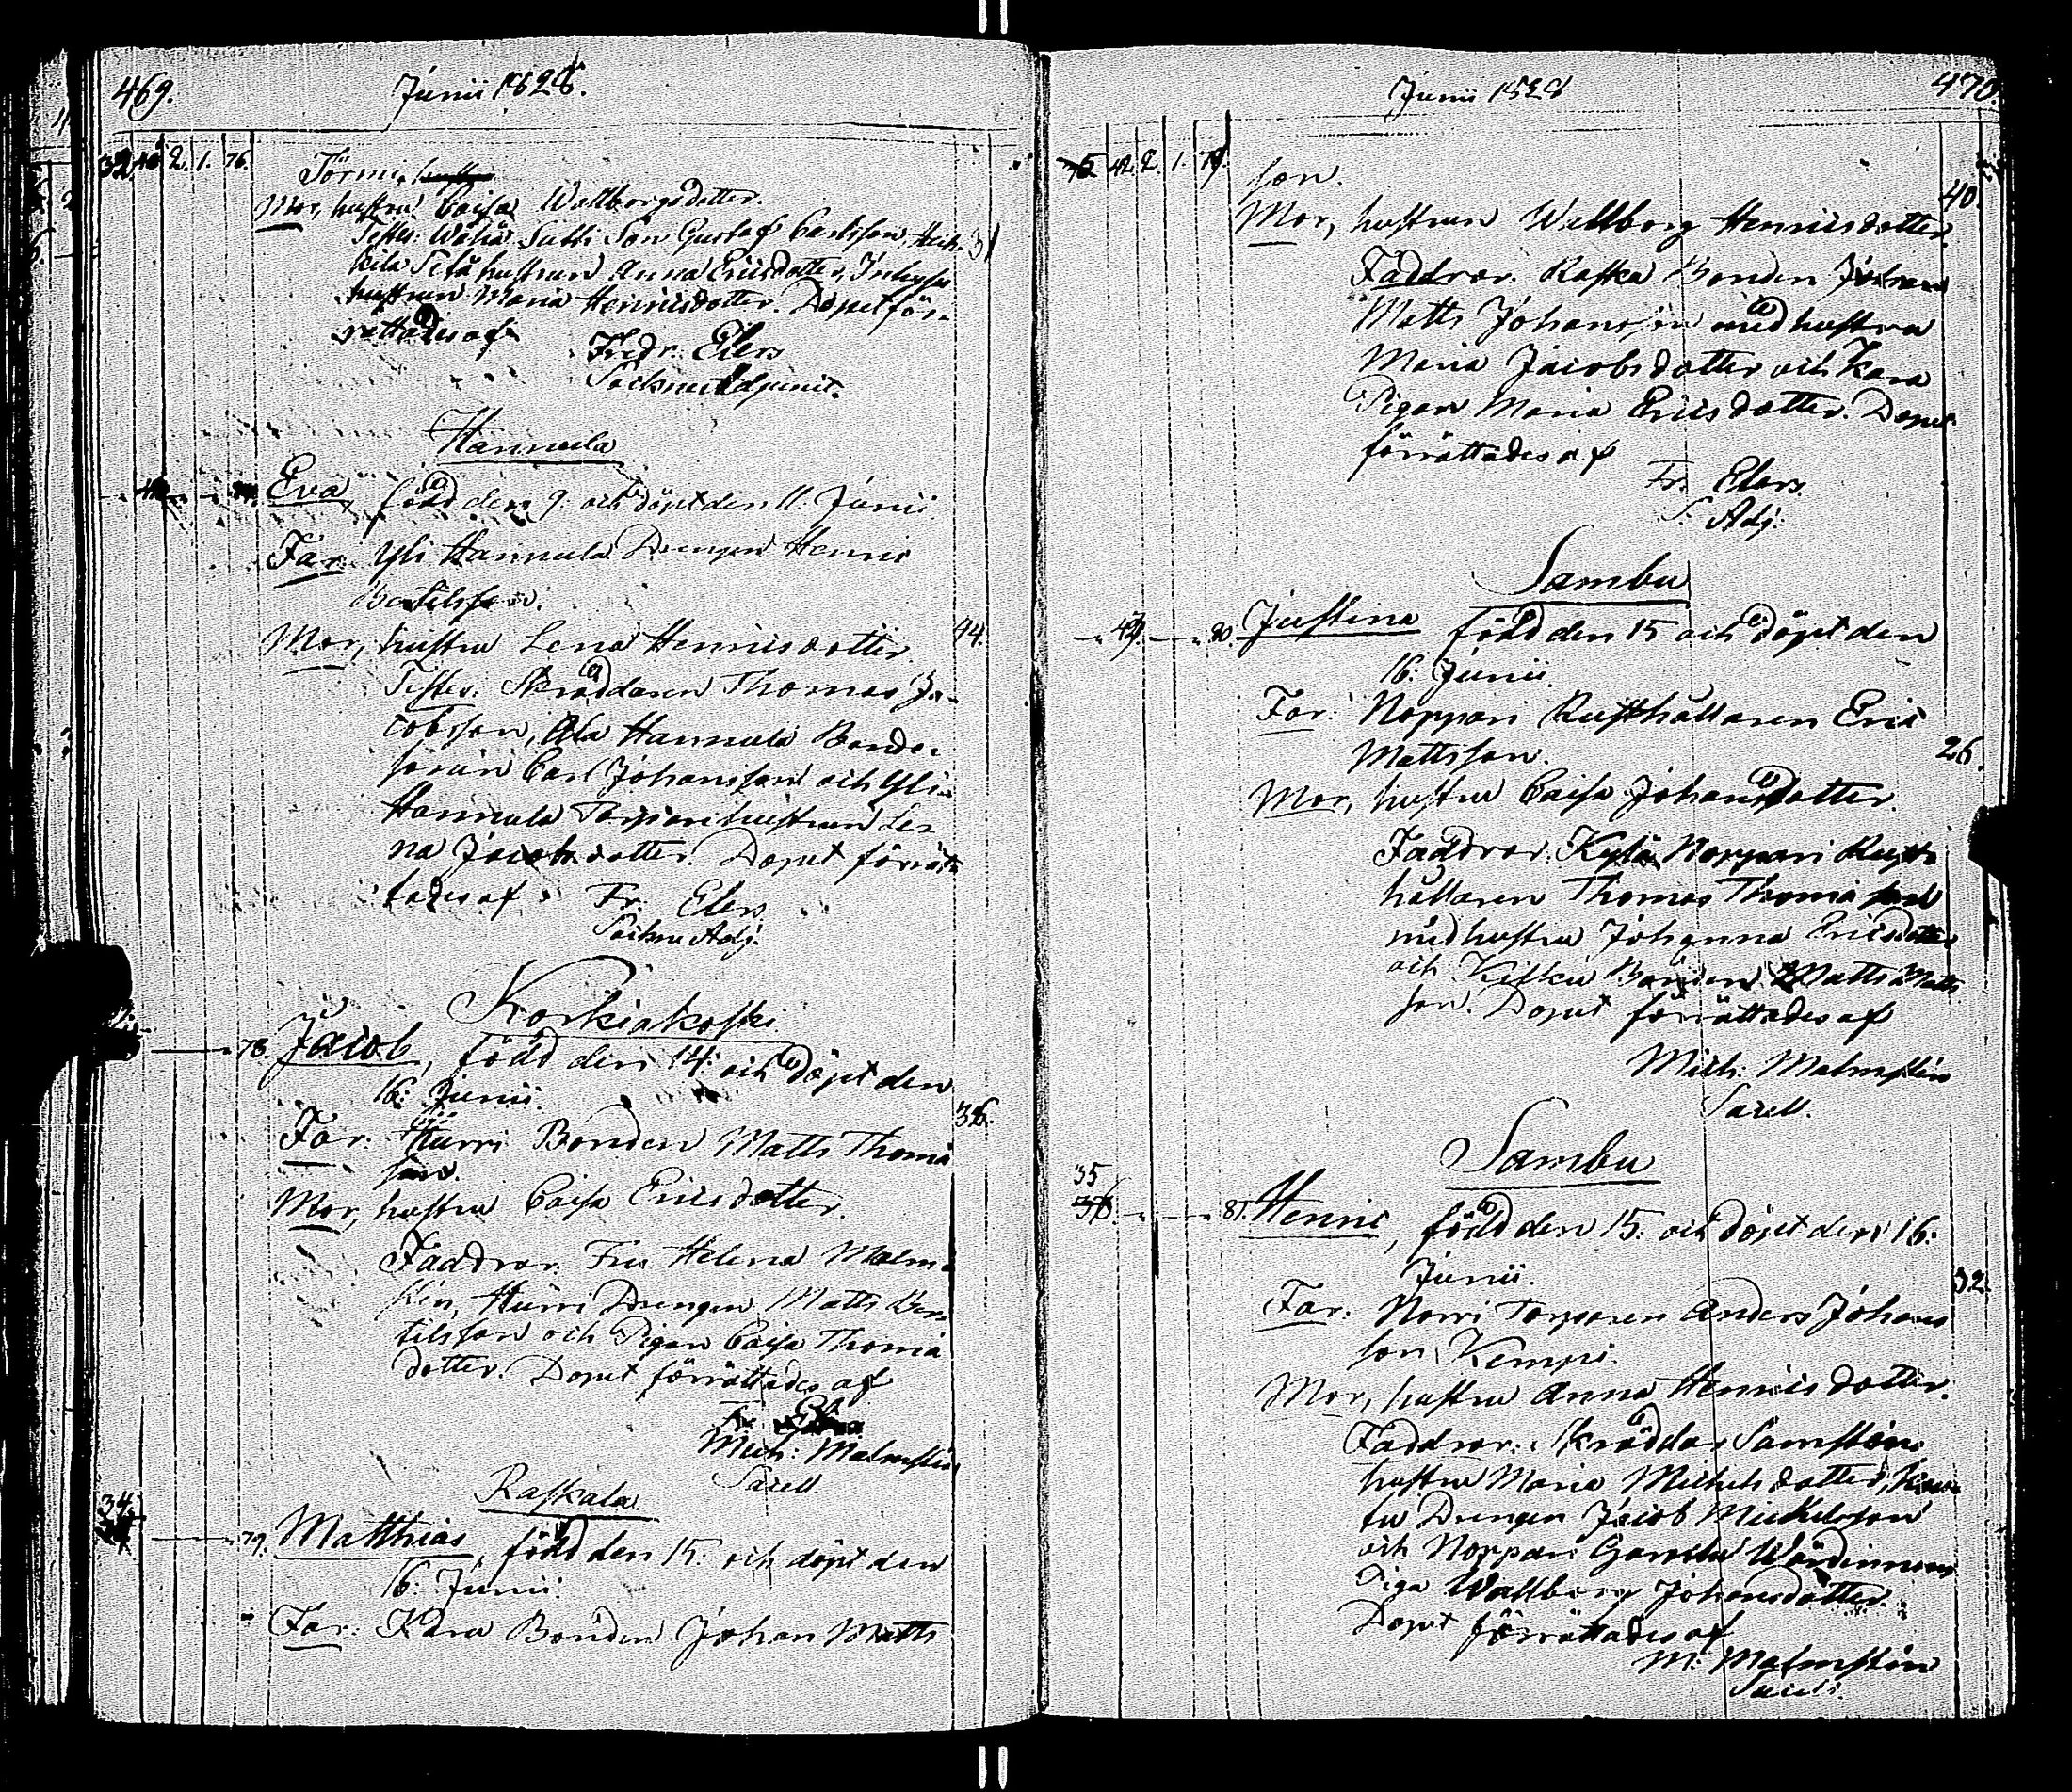 469. Junii 1828.
32. 40 2. 1. 76.
Törmi,
Mor, hustru Caisa Wallborgsdotter.
Testes: Wähä Sutti Son Gustaf Carlsson, Heik- 31
kilä hustrun Anna Ericsdotter, Inhyses
hustrun Maria Henricsdotter. Dopet för-
rättades af
Fredr. Elers
Sockne Adjunct.
Hannula
Eva, född den 9. och döpt den 11. Junii
Far: Yli Hannula Drengen Henric
Bertilsson.
Mor, hustru Lena Henricsdotter 44.
Testes: Skräddaren Thomas Ja-
cobsson, Ala Hannula Bonde-
sonen Carl Johansson och Yli-
Hannula Torparehustrun Le-
na Jacobsdotter. Dopet förrät-
tades af Fr. Elers
Sockne Adj.
Korkiakoski
78. Jacob, född den 14. och döpt den
16. Junii. 36.
Far: Hurri Bonden Matts Thoma
son.
Mor, hustru Caisa Ericsdotter.
Faddrar: Fru Helena Malm-
stén, Hurri Drengen Matts Ber-
tilsson och Pigan Caisa Thoma
dotter. Dopet förrättades af
Mich: Malmstén
Sacell.
Raskala
34.
79. Matthias, född den 15. och döpt den
16. Junii.
Far: Kara Bonden Johan Matts
Junii 1828 470.
42. 2. 1. 79.
son. 40.
Mor, hustrun Wallborg Henricsdotter
Faddrar: Raska Bonden
Matts Johansson med hustru
Maria Jacobsdotter och Kara
Pigan Maria Ericsdotter. Dopet
förrättades af
Fr. Elers
S. Adj:
Sambu
43. 80. Justina född den 15 och döpt den
16. Junii.
Far: Noppari Rusthållaren Eric
Mattsson. 26.
Mor, hustru Caisa Johansdotter.
Faddrar: Kylä Noppari Rust-
hållaren Thomas Thomasson
med hustru Johanna Ericsdotter
och Kisku Bonden Matts Matts
son. Dopet förrättades af
Mich: Malmstén
Sacell.
Sambu
35
36. 81. Henric, född den 15. och döpt den 16.
Junii. 32.
Far: Norri Torparen Anders Johans
son Kempi.
Mor, hustru Anna Henricsdotter.
Faddrar: Skräddar Samsténs
hustru Maria Michelsdotter,
Drengen Jacob Mickelsson
och Noppari Gamla Wärdinnans
Piga Wallborg Johansdotter.
Dopet förrättades af
M: Malmstén
Sacell.